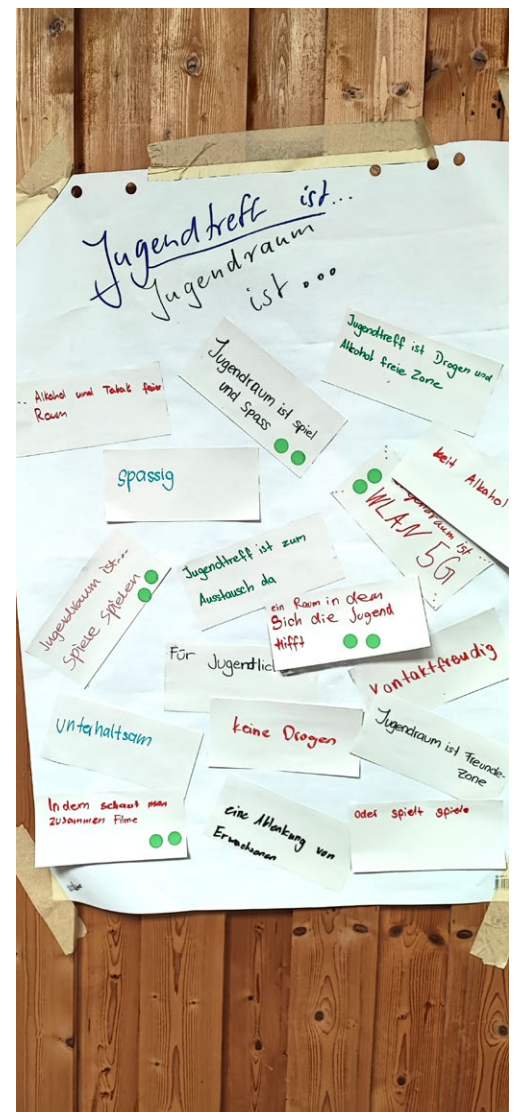 Jugendtreff ist...
Jugendraum
ist...
Jugendtreff ist Drogen und
Alkohol freie Zone
Jugendraum ist spiel
und Spass
.. Alkohol und Tabak feier
Raum
spassig
keit Alkohol
ist...
WLAN 5G
Jugendraum ist...
Spiele Spielen
Jugendtreff ist zum
Ausstausch da
ein Raum in dem
Sich die Jugend
trifft
Für Jugendlic
Kontaktfreudig
Unterhaltsam
keine Drogen
Jugendraum ist Freunde-
zone
In dem schaut man
zusammen Filme
eine Ablenkung von
Erwachsenen
oder spielt spiele